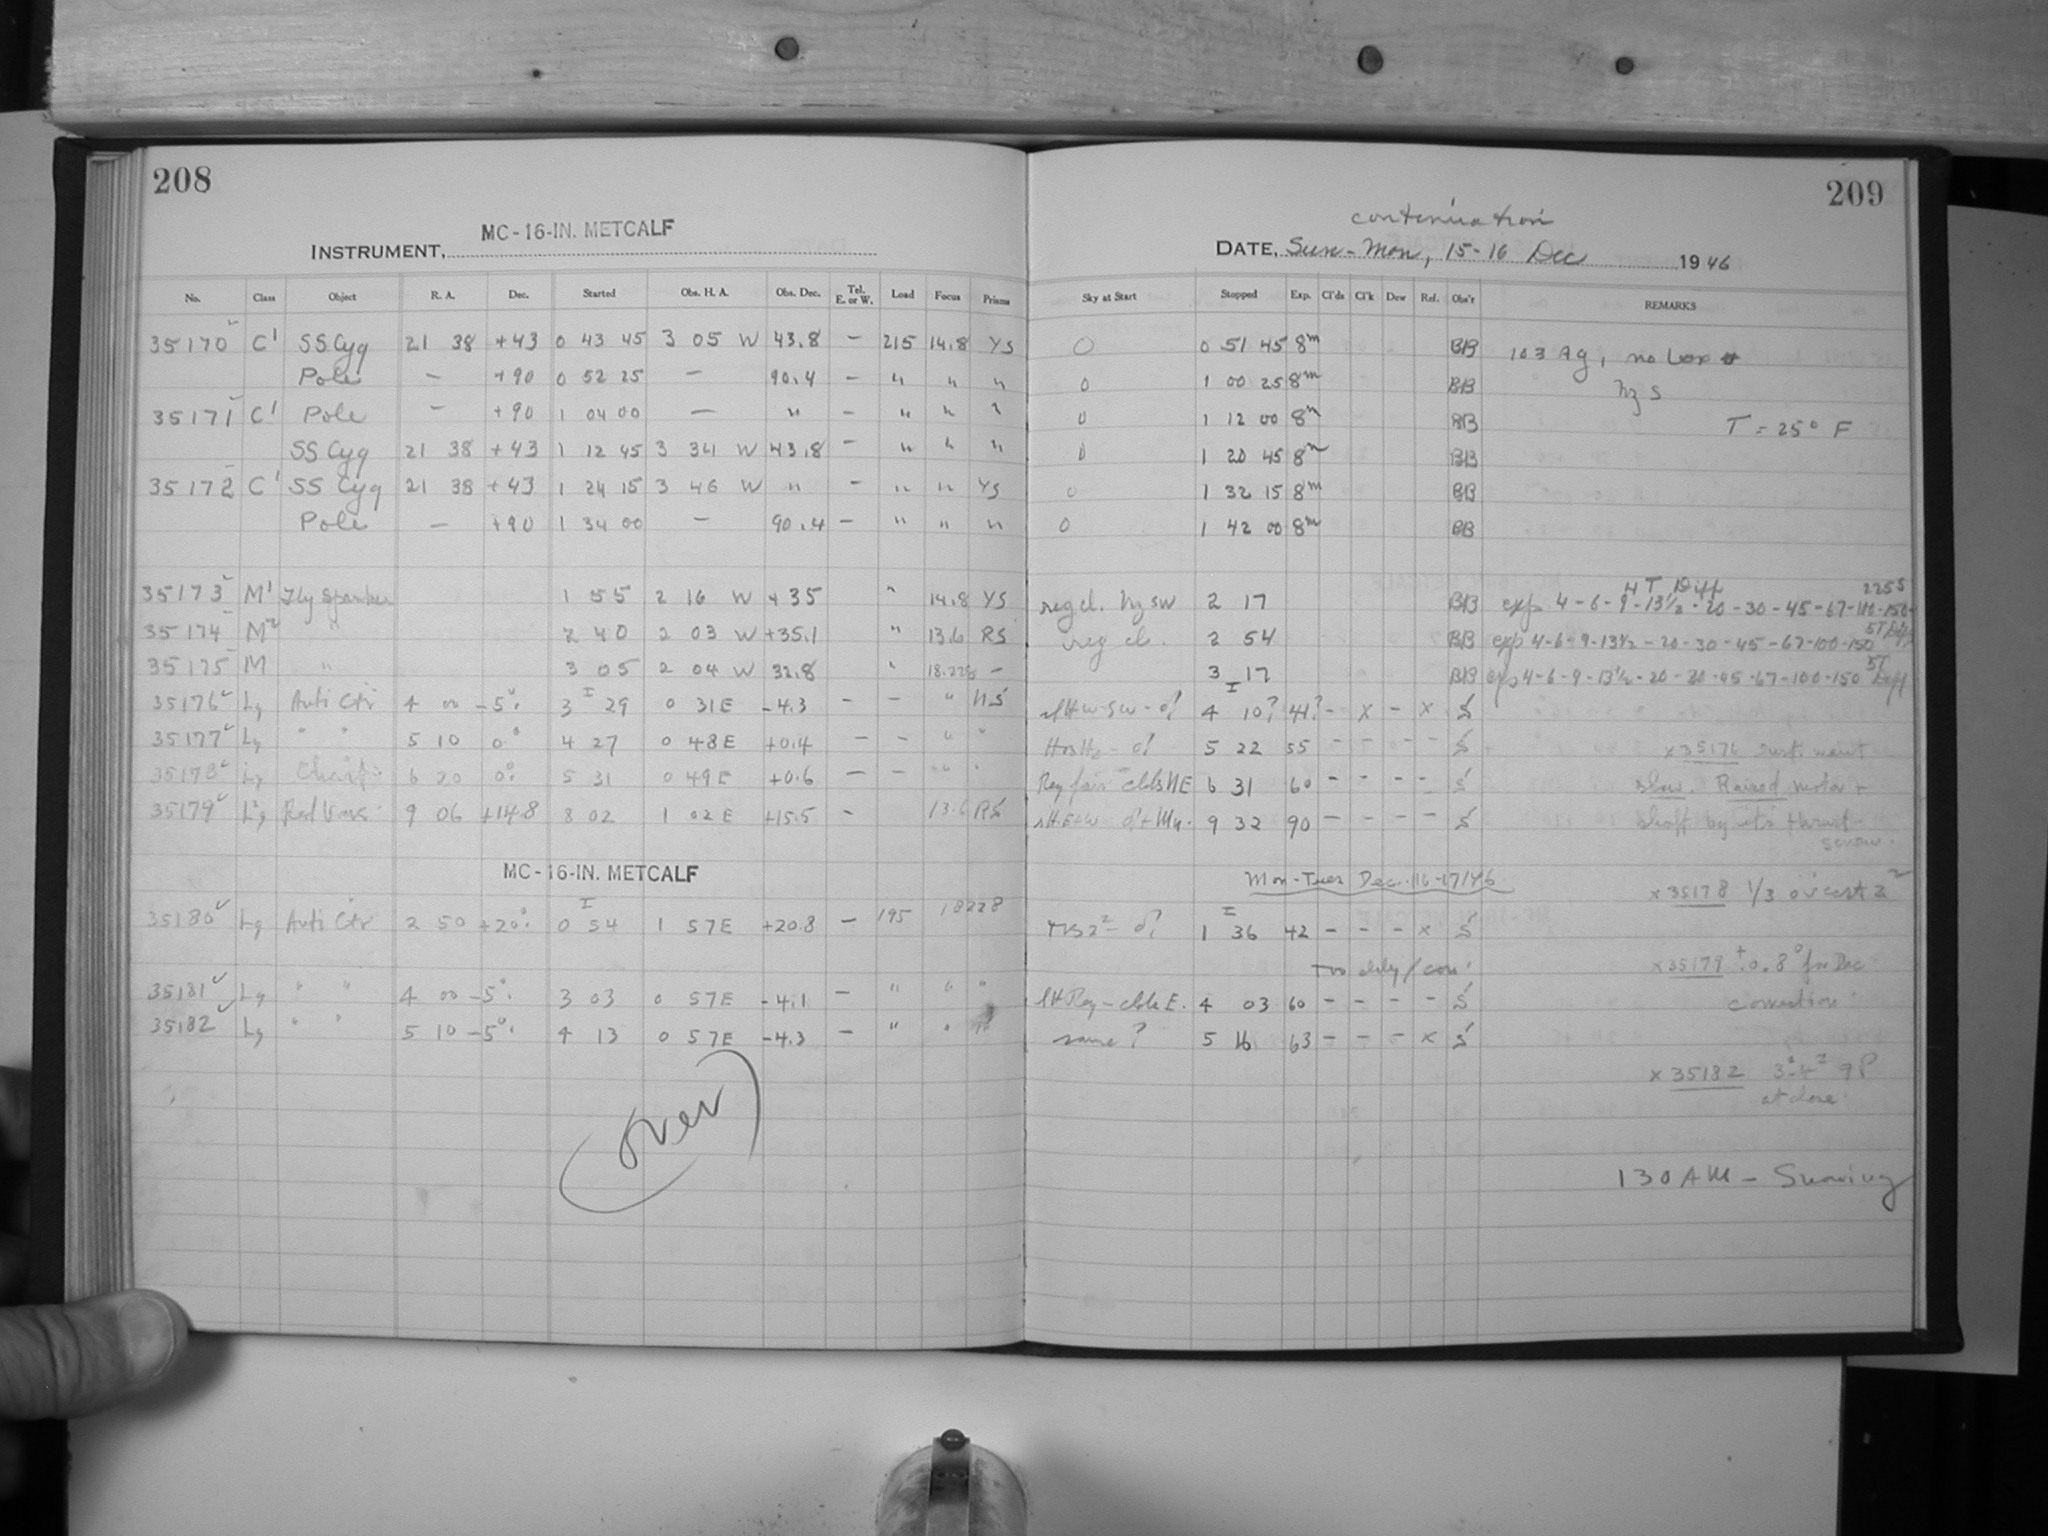 208
MC-16-IN. METCALF
INSTRUMENT,
No. Class Object R. A. Dec. Started Obs. H. A. Obs. Dec. Tel. E. or W. Load Focus Prisms
35170 C' SS Cyg 21 38 +43 0 43 45 3 05 W 43.8 — 215 14.8 YS
Pole — +90 0 52 25 — 90.4 — " " "
35171 C' Pole — +90 1 04 00 — " — " " "
SS Cyg 21 38 +43 1 12 45 3 34 W 43.8 — " " "
35172 C' SS Cyg 21 38 +43 1 24 15 3 46 W " — " " YS
Pole — +90 1 34 00 — 90.4 — " " "
35173 M' 1 55 2 16 W +35 " 14.8 YS
35174 M2 " 2 40 2 03 W +35.1 " 13.6 RS
35175 M " 3 05 2 04 W 32.8 " 18.228 —
35176 Lg Anti Ctr 4 00 -5° 3 29 0 31E -4.3 — — " NS
35177 Lg " " 5 10 0° 4 27 0 48E +0.4 — — " "
35178 Lg 6 20 0° 5 31 0 49E +0.6 — — " "
35179 Lg Red Vars 9 06 +14.8 8 02 1 02E +15.5 — 13.6 RS
MC-16-IN. METCALF
35180 Lg Anti Ctr 2 50 +20° 0 54 1 57E +20.8 — 195 18228
35181 Lg " " 4 00 -5° 3 03 0 57E -4.1 — " " "
35182 Lg " " 5 10 -5° 4 13 0 57E -4.3 — " " "
(over)
209
continuation
DATE, Sun-Mon, 15-16 Dec 1946
Sky at Start Stopped Exp. Cl'ds Cl'k Dew Ref. Obs'r REMARKS
0 0 51 45 8m BB 103 Ag, no box
0 1 00 25 8m BB hz s
0 1 12 00 8m BB T = 25° F
0 1 20 45 8m BB
0 1 32 15 8m BB
0 1 42 00 8m BB
4 T Diff 225s
reg cl. hz sw 2 17 BB exp 4-6-9-13½-20-30-45-67-100-150-
reg cl. 2 54 BB exp 4-6-9-13½-20-30-45-67-100-150 5T Diff
3 17 BB exp 4-6-9-13½-20-30-45-67-100-150 5T Diff
4 10? 41? - x - x S
5 22 55 - - - - S x 35176 went
6 31 60 - - - - S slow. Raised motor +
9 32 90 - - - - S shaft by its thrust
screw.
Mon-Tues Dec. 16-17/46
x 35178 1/3 overcast
1 36 42 - - - x S
Too
x 35179 +0.8° for Dec
4 03 60 - - - - S correction.
same? 5 16 63 - - - x S
x 35182
at close
130 AM - Snowing